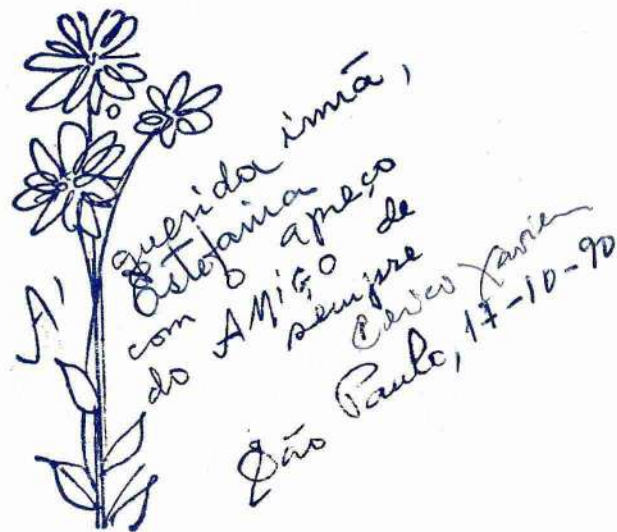 À querida irmã,
Estefania
com o apreço
do AMiGO de
sempre
Chico Xavier
São Paulo, 17-10-90